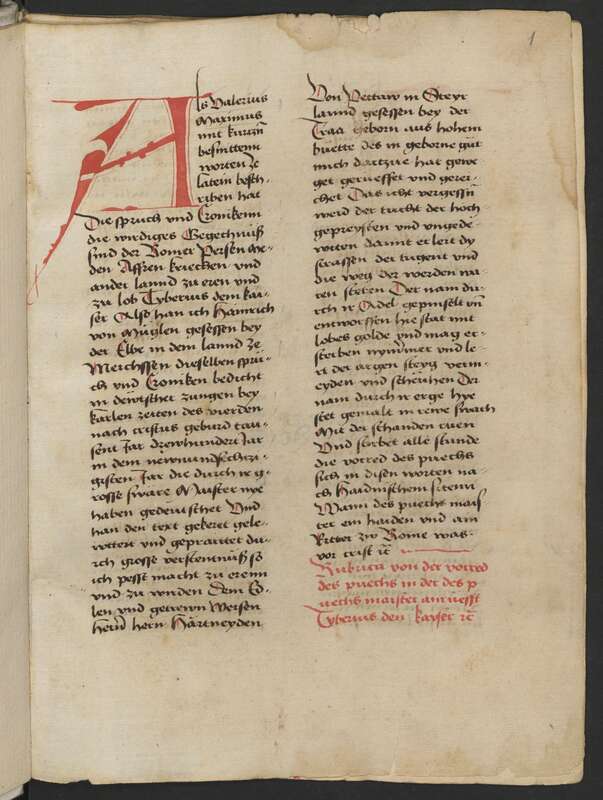 1
Als Valerius
Maximus
mit kurtzn
besnittenn
worten ze
latein besch-
riben hat
Die spruch vnd Cronikenn
die wirdiges Gegechnuß
sind der Romer Persen me-
den Affren kriechen vnd
ander lannd zu eren vnd
zu lob Tyberius dem kai-
ser Also han ich Hainrich
von Müglen gesessen bey
der Elbe in dem lannd ze
Meichssen dieselben sprü-
ch vnd Croniken bedicht
in dewtscher zungen bey
karlen zeiten des vierden
nach cristus geburd tau-
sent Jar drewhundert Jar
in dem newnundsechzi-
gisten Jar die durch ir g-
rosse sware Maister nye
haben gedewtschet Vnd
han den text gekeret gele-
wttert vnd gepraittet du-
rch grosse verstentnuß so
ich pesst macht zu erenn
vnd zu wirden dem Ed-
len vnd getrewn Weisen
herrn hern Hartneyden
Von Pettaw in Steyr
lannd gesessen bey der
Traa geborn aus hohem
huette des in geborne güt
mich dartzue hat gewe-
get geruesset vnd gerei-
chet Das icht vergessn
werd der tucht der hoch
gepreysten vnd vngede-
wten damit er lert dy
strassen der tugent vnd
die weg der werden na-
ten steten Der nam du-
rch ir Adel gepinselt vnd
entworffen hie stat mit
lobes golde vnd mag er-
sterben nymmer vnd le-
rt der argen steyg verm-
eyden vnd scheuhen Der
nam durch ir erge hye
stet gemalt in rewe swach
Mit der schanden ruen
Vnd stirbet alle stunde
die vorred des puechs
sich in disen worten na-
ch Haidnischem sitenn
Wann des puechs mais-
ter ein haiden vnd am
Ritter zw Rome was
vor crist etc
Rubrica von der vorred
des puechs in der des p
uechs maister anruefft
Tyberius den kayser etc